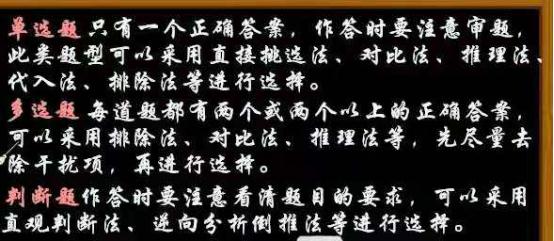 单选题 只有一个正确答案，作答时要注意审题，
此类题型可以采用直接挑选法、对比法、推理法、
代入法、排除法等进行选择。
多选题 每道题都有两个或两个以上的正确答案，
可以采用排除法、对比法、推理法等，先尽量去
除干扰项，再进行选择。
判断题作答时要注意看清题目的要求，可以采用
直观判断法、逆向分析倒推法等进行选择。